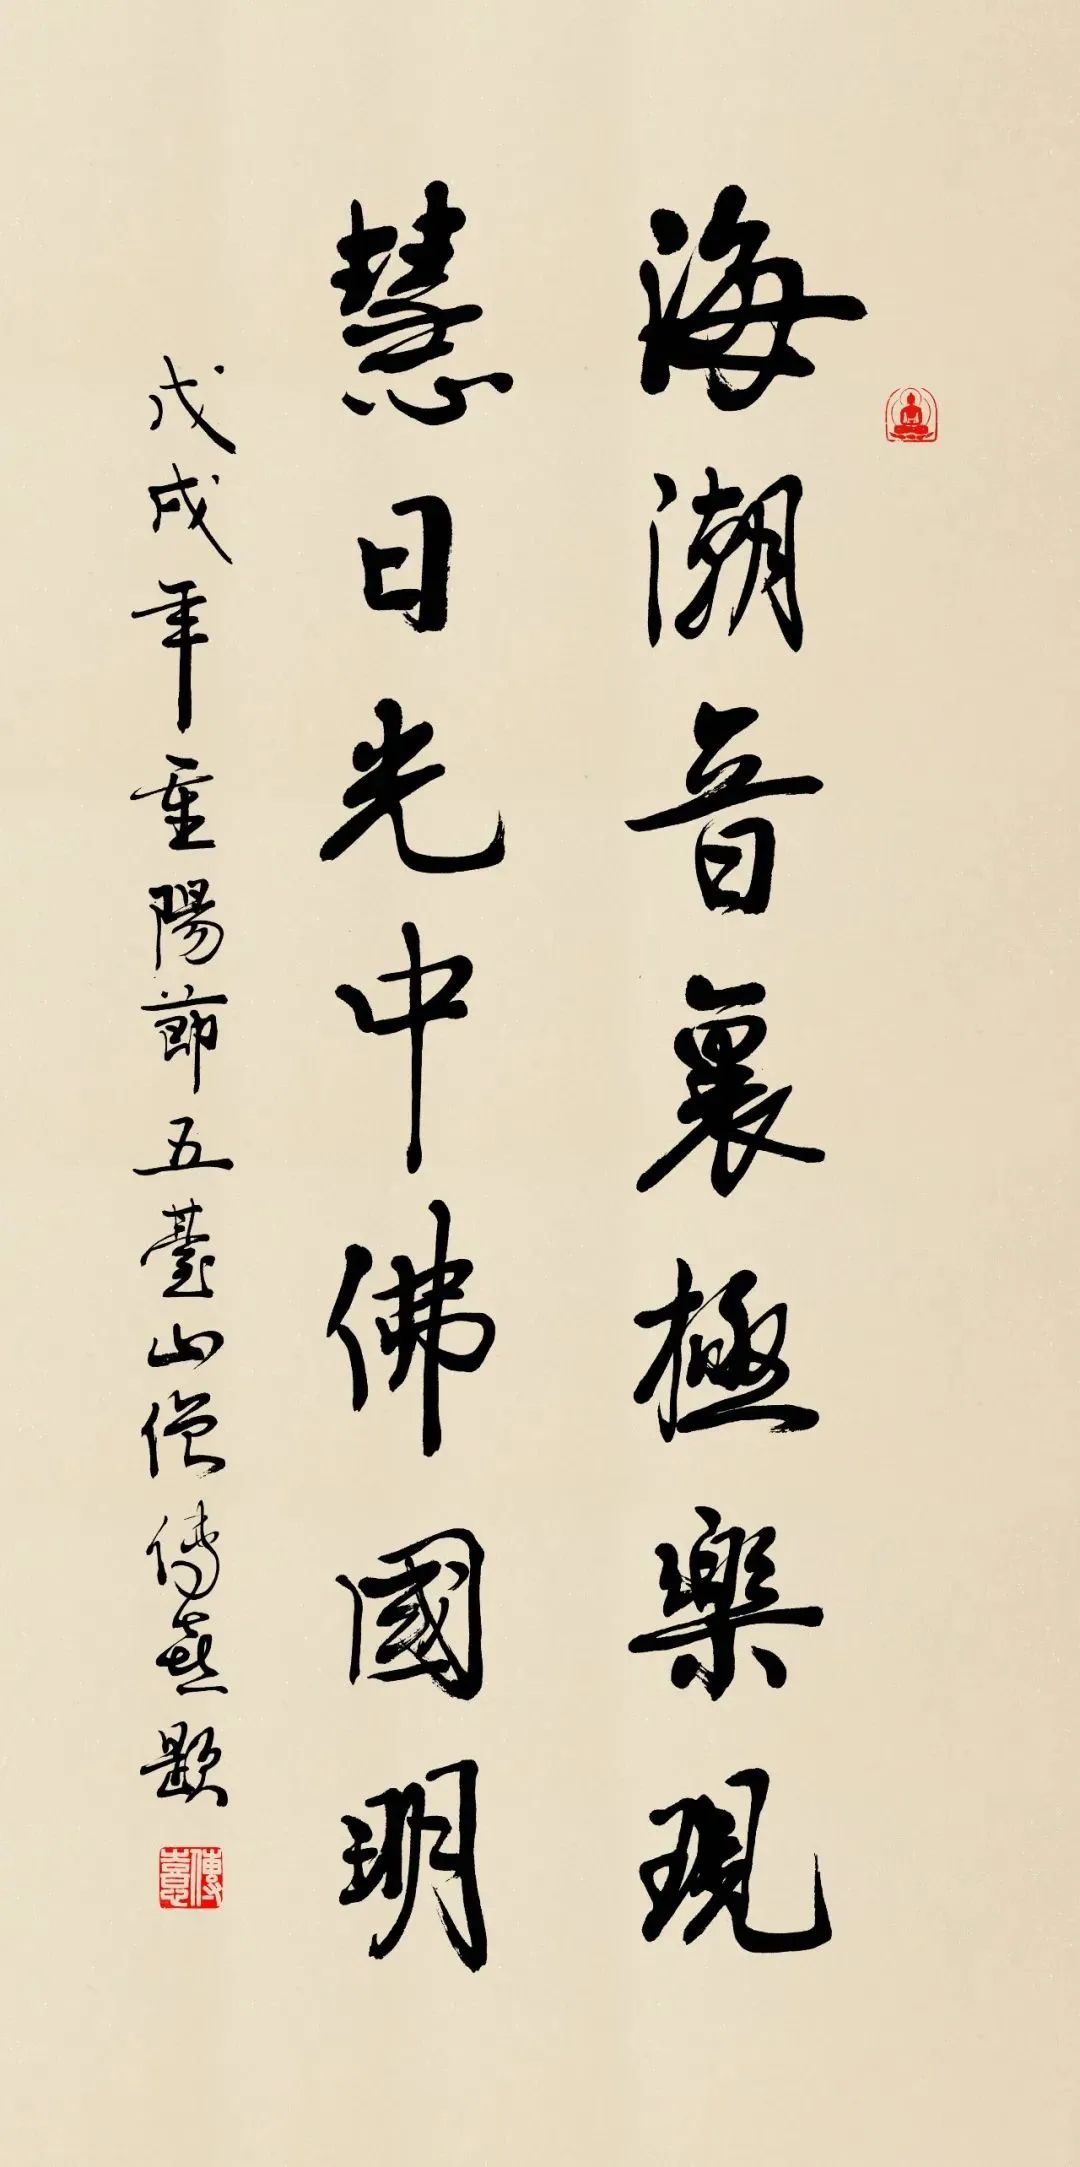 海潮音裏極樂現
慧日光中佛國明
戊戌年重陽節五臺山僧傳喜題
傳喜